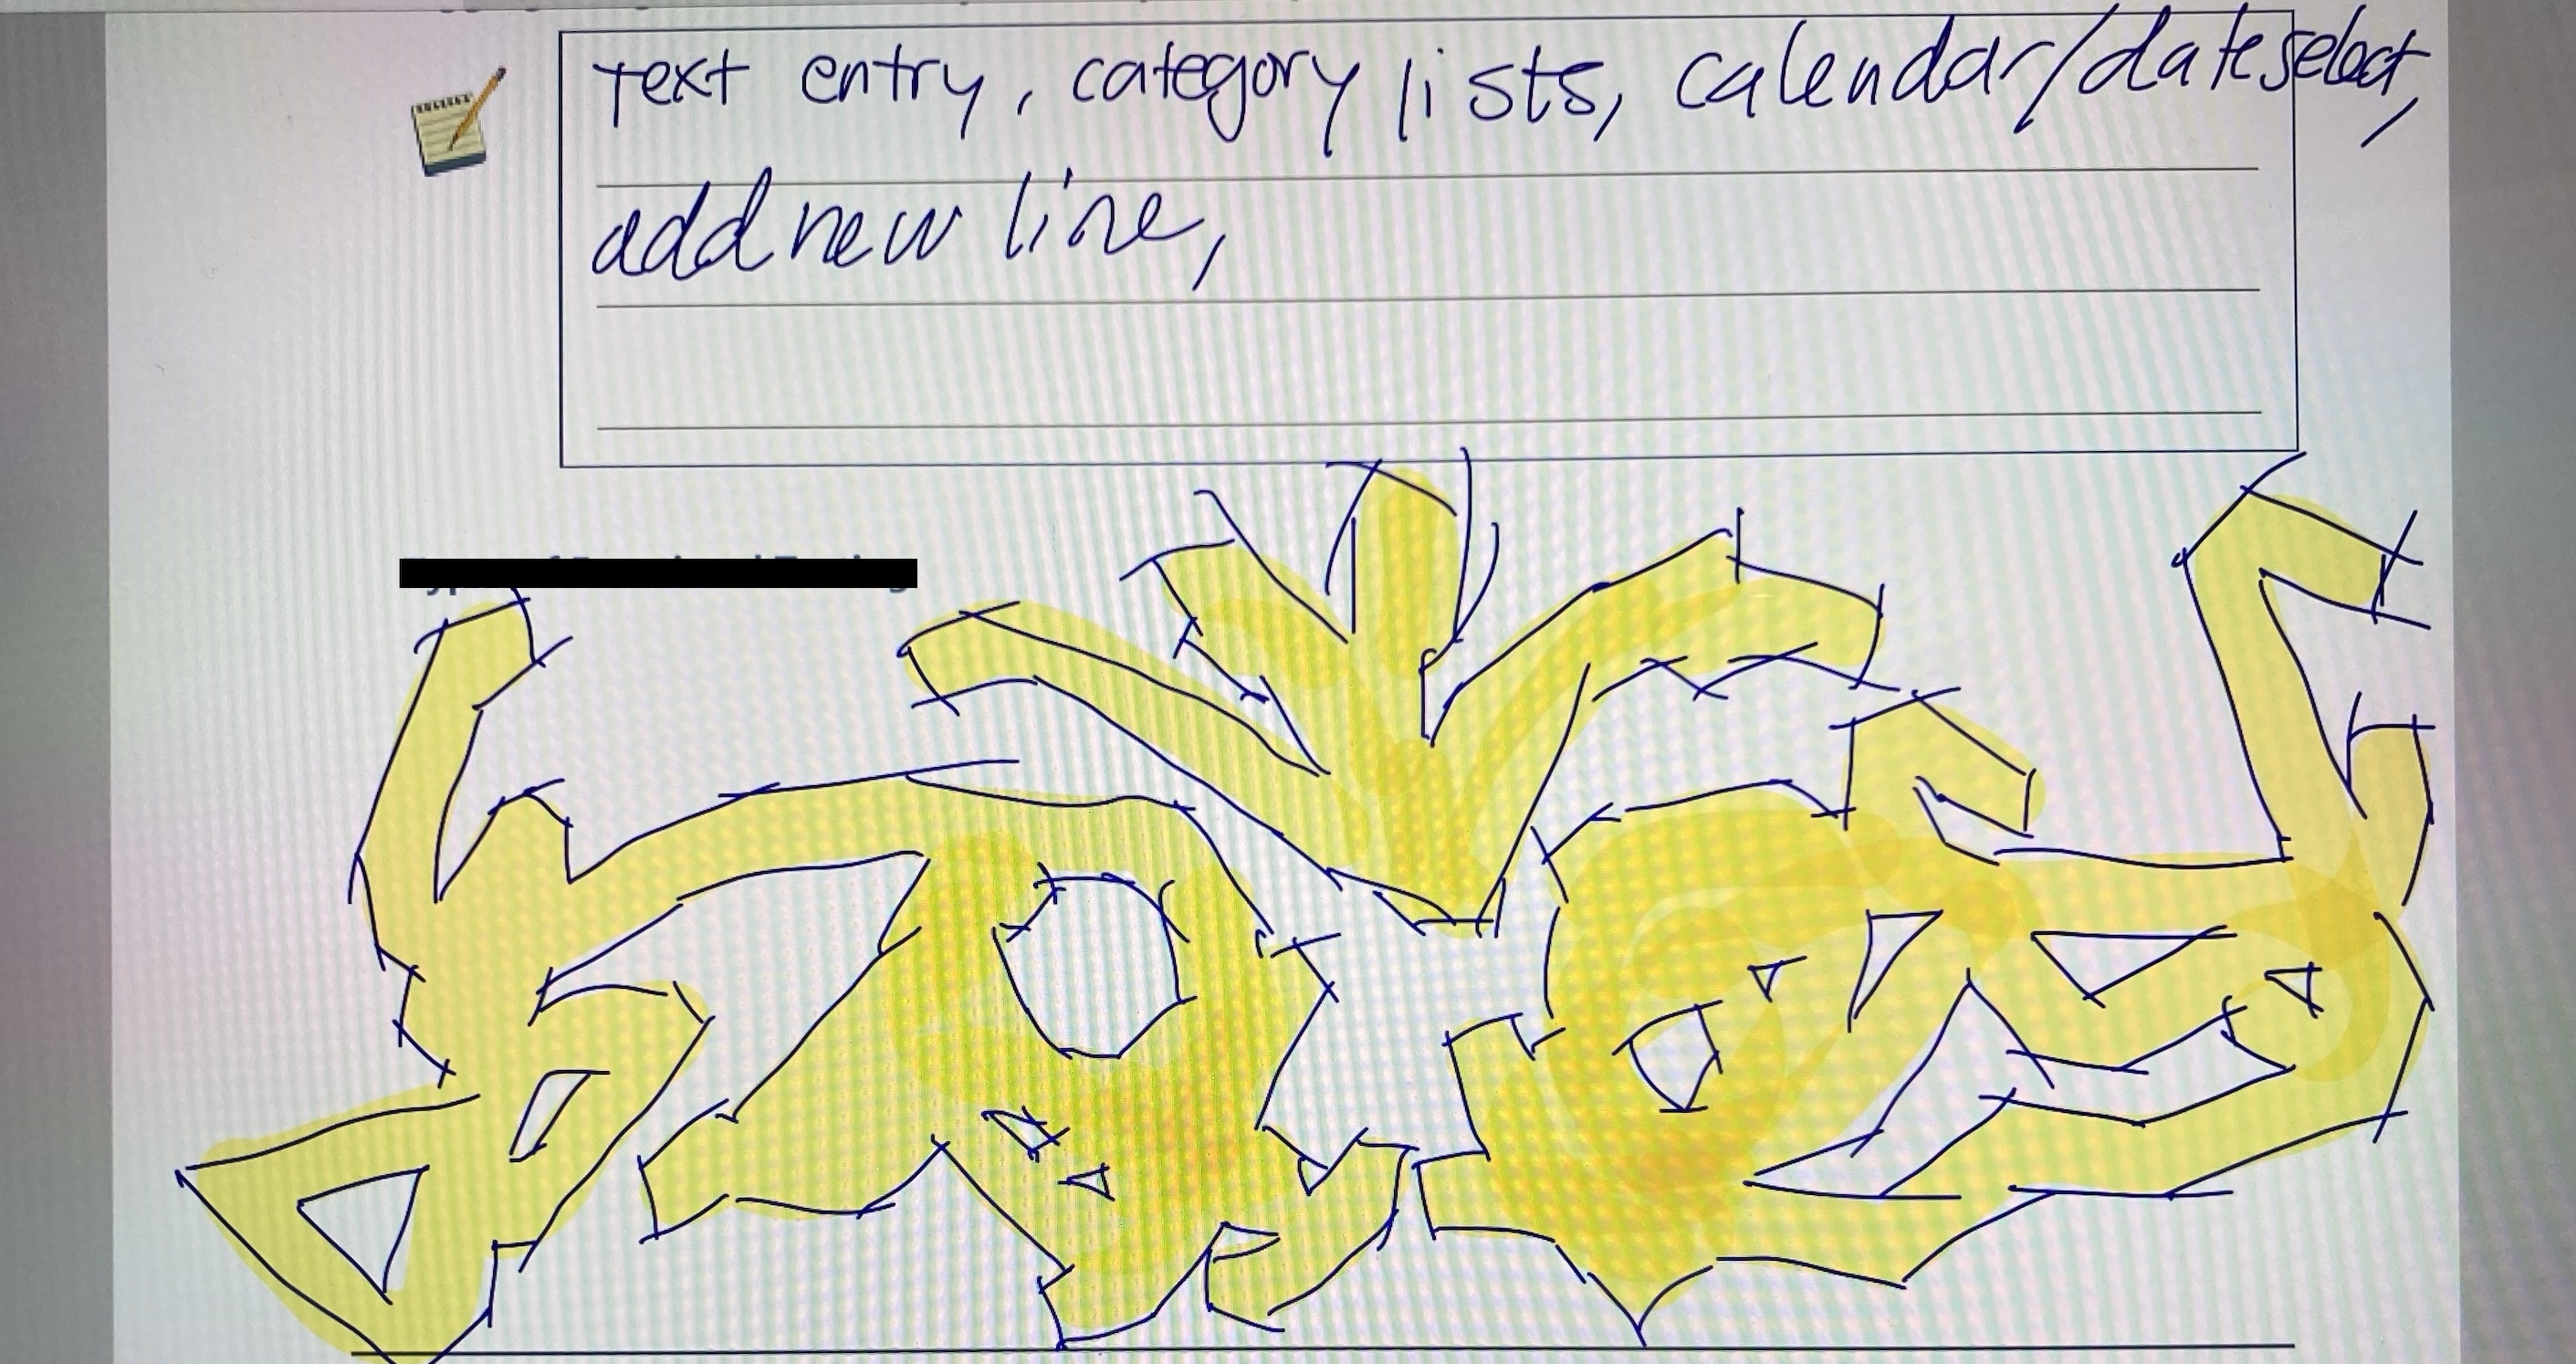 Text entry, category lists, calendar/date select,
add new line,